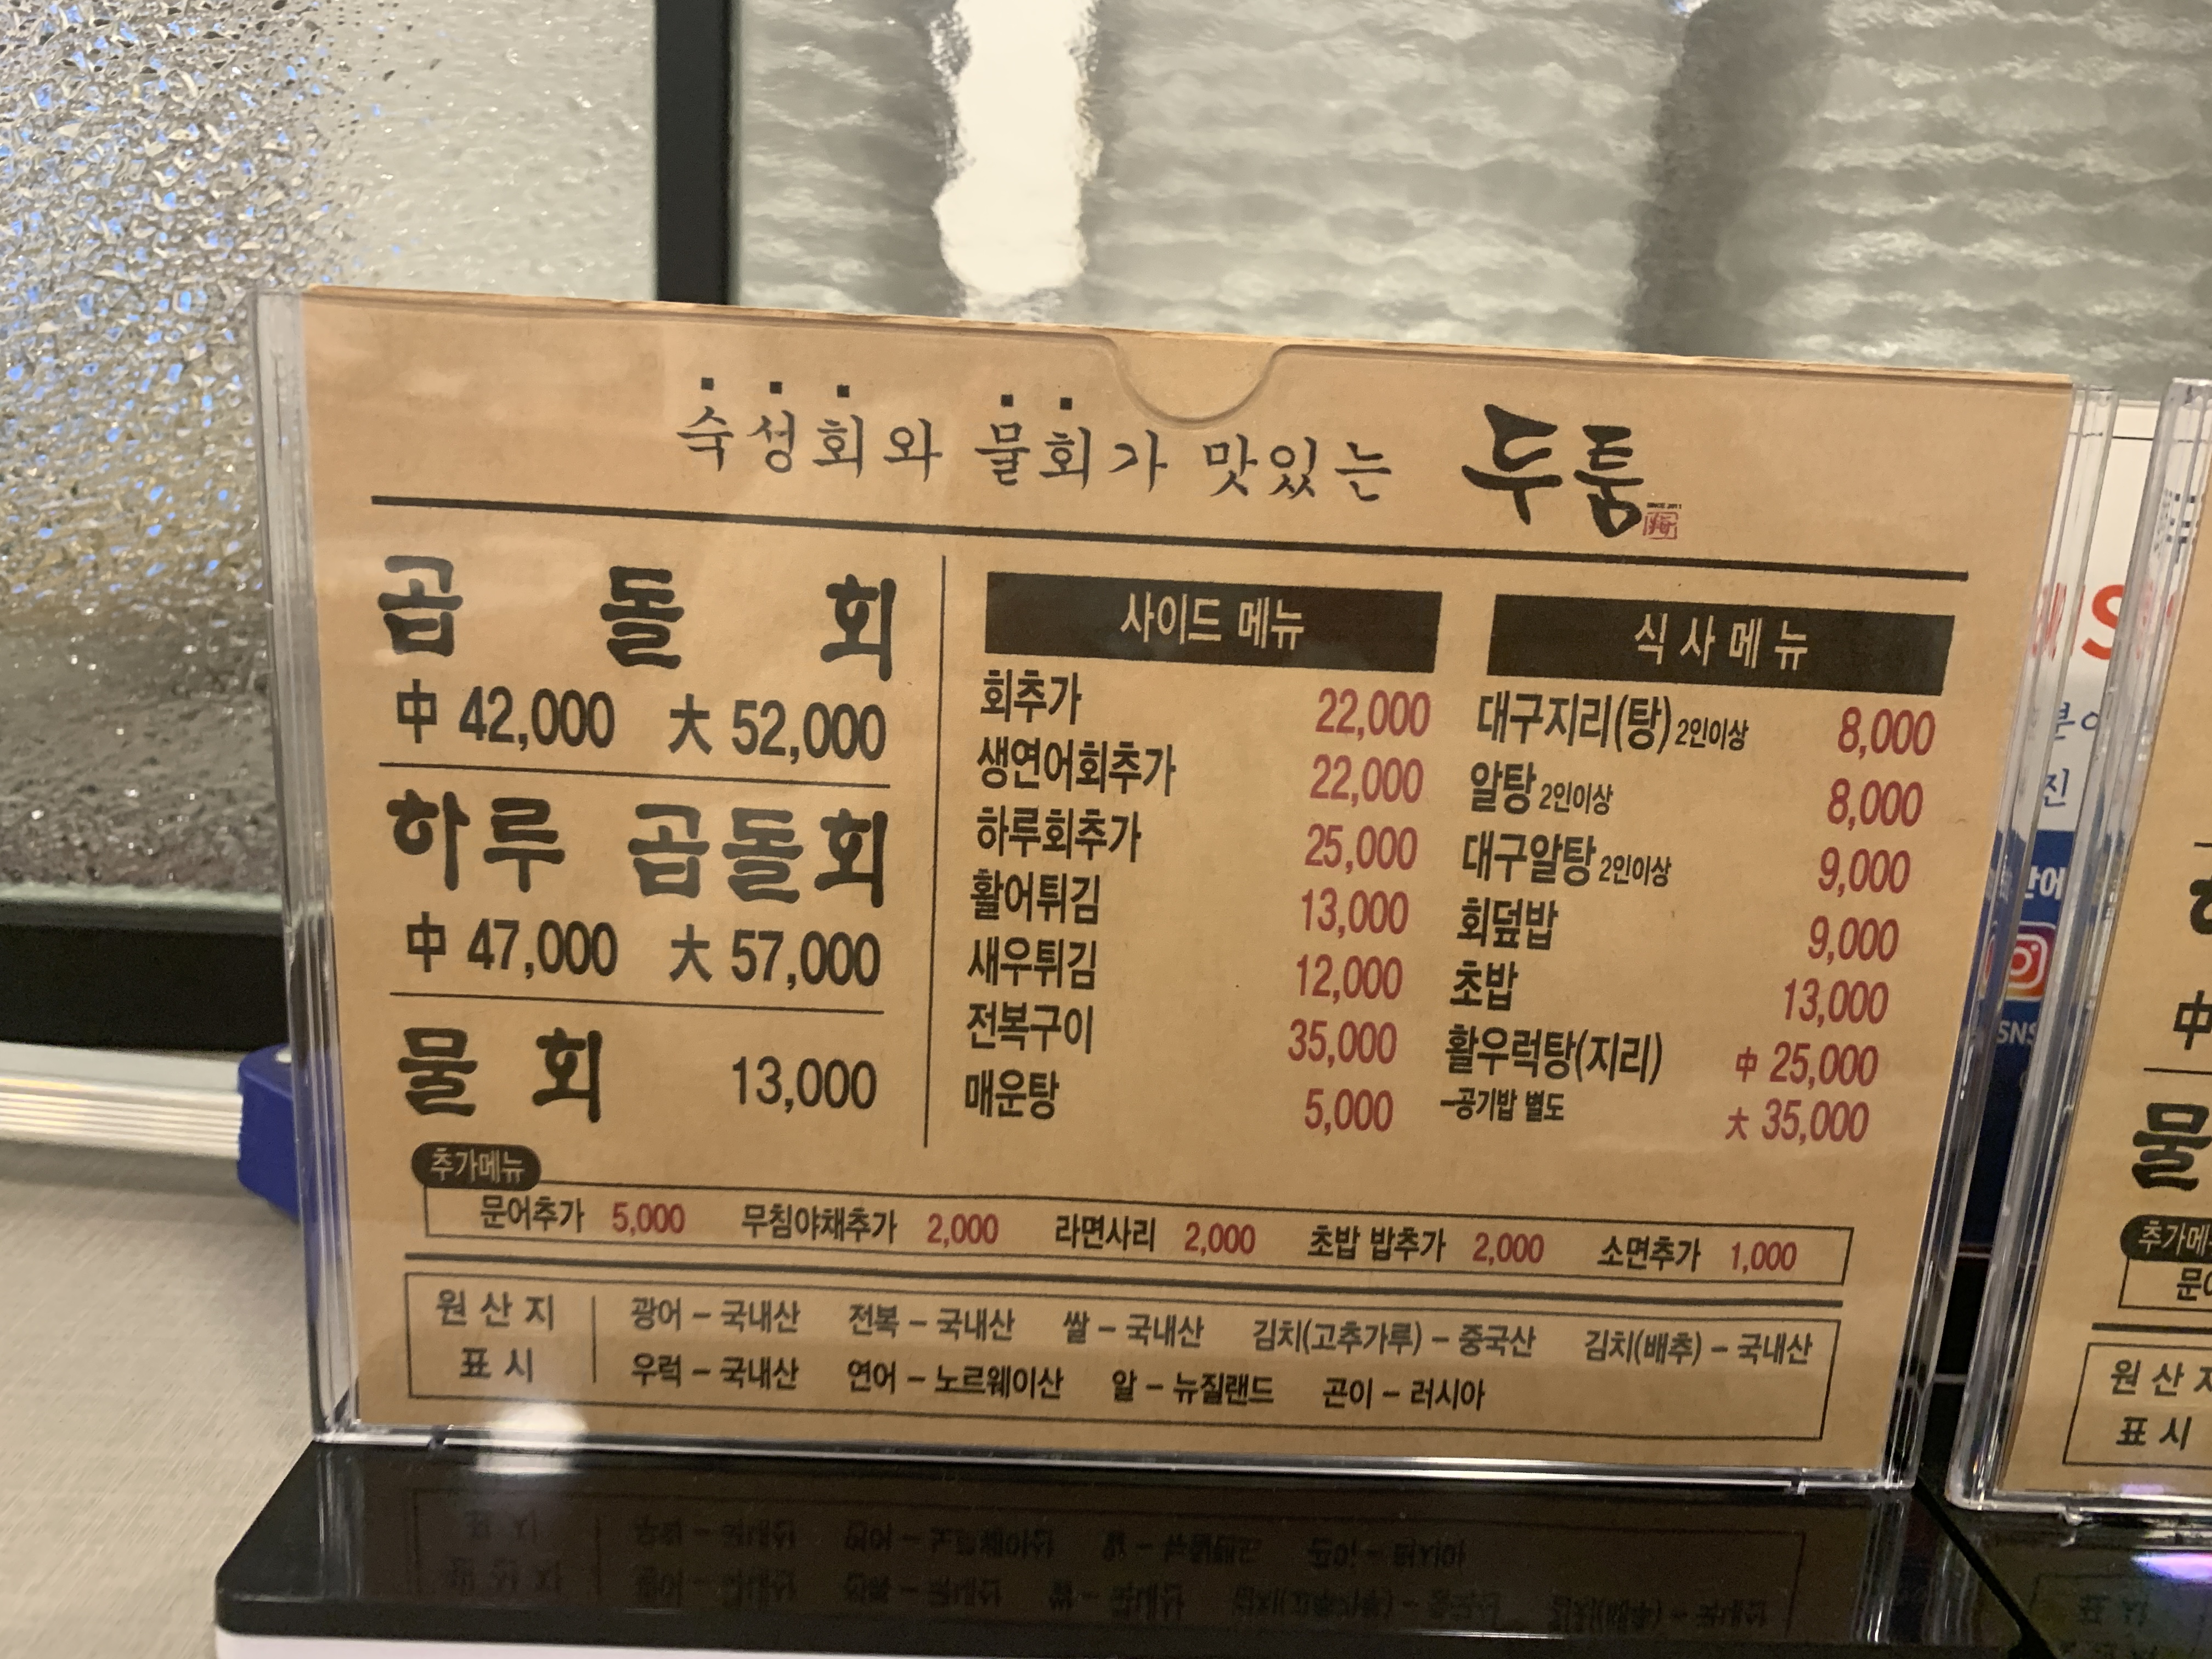 숙성회와 물회가 맛있는 두툼
곱돌회
中 42,000 大 52,000
하루 곱돌회
中 47,000 大 57,000
물회 13,000
사이드 메뉴
회추가 22,000
생연어회추가 22,000
하루회추가 25,000
활어튀김 13,000
새우튀김 12,000
전복구이 35,000
매운탕 5,000
식사메뉴
대구지리(탕) 2인이상 8,000
알탕 2인이상 8,000
대구알탕 2인이상 9,000
회덮밥 9,000
초밥 13,000
활우럭탕(지리) 中 25,000
-공기밥 별도 大 35,000
추가메뉴
문어추가 5,000 무침야채추가 2,000 라면사리 2,000 초밥 밥추가 2,000 소면추가 1,000
원산지
표시
광어 - 국내산 전복 - 국내산 쌀 - 국내산 김치(고추가루) - 중국산 김치(배추) - 국내산
우럭 - 국내산 연어 - 노르웨이산 알 - 뉴질랜드 곤이 - 러시아
SNS
中
물
추가메
원산
표시